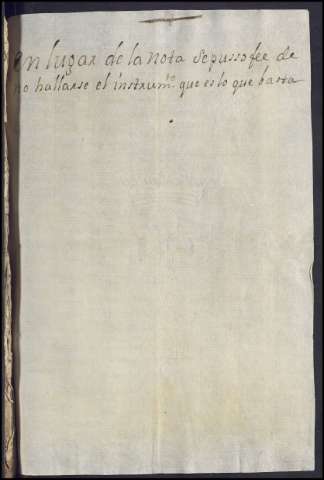 en lugar de la nota se pusso fee de
no hallarse el instrumto. que es lo que basta